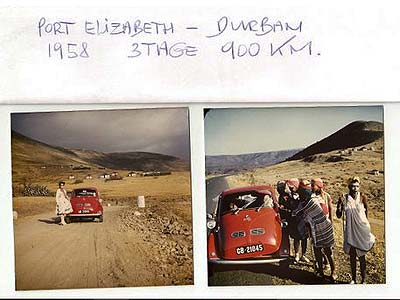 PORT ELIZABETH – DURBAN
1958 3 TAGE 900 KM.
CB·21045